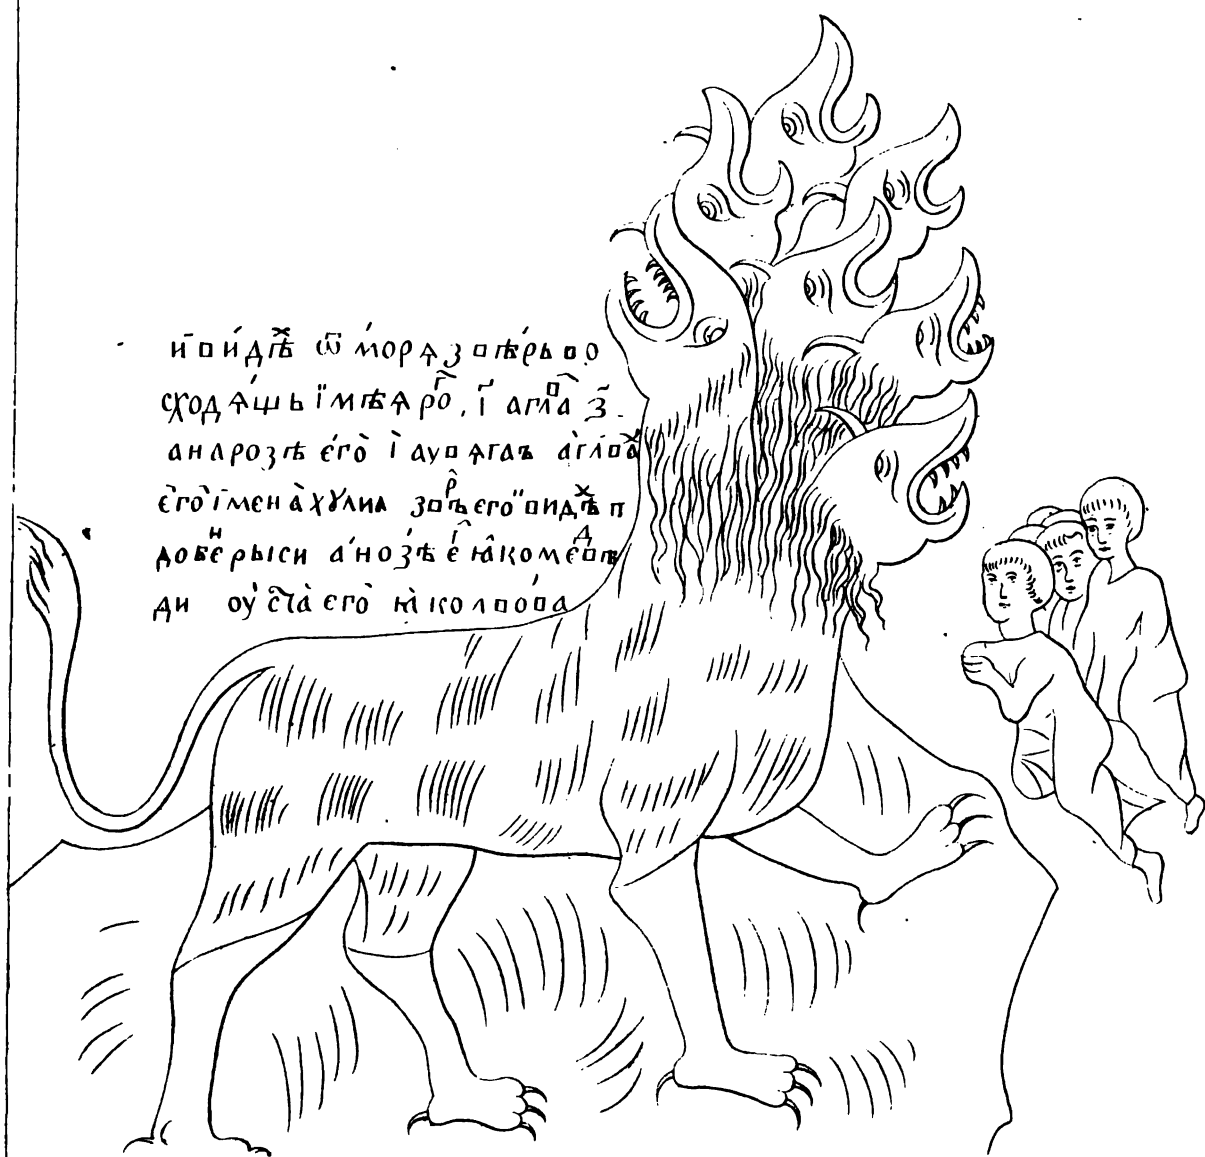 и҃ ви́дѣх ѿ мо́рѧ звѣ́рь во
сходѧ́щь їмѣѧ ро̑г, і҃ а глав з҃.
а на розѣ его̀ і҃ а у вѧгаъ а̀ глава
его̀ їмена̀ хꙋлна звѣръ его̀ видѣх п
добен рыси а но́зѣ е̑ ꙗ̑ко медвѣ
ди оу́ста̀ его̀ ꙗ̑ко лво́ва